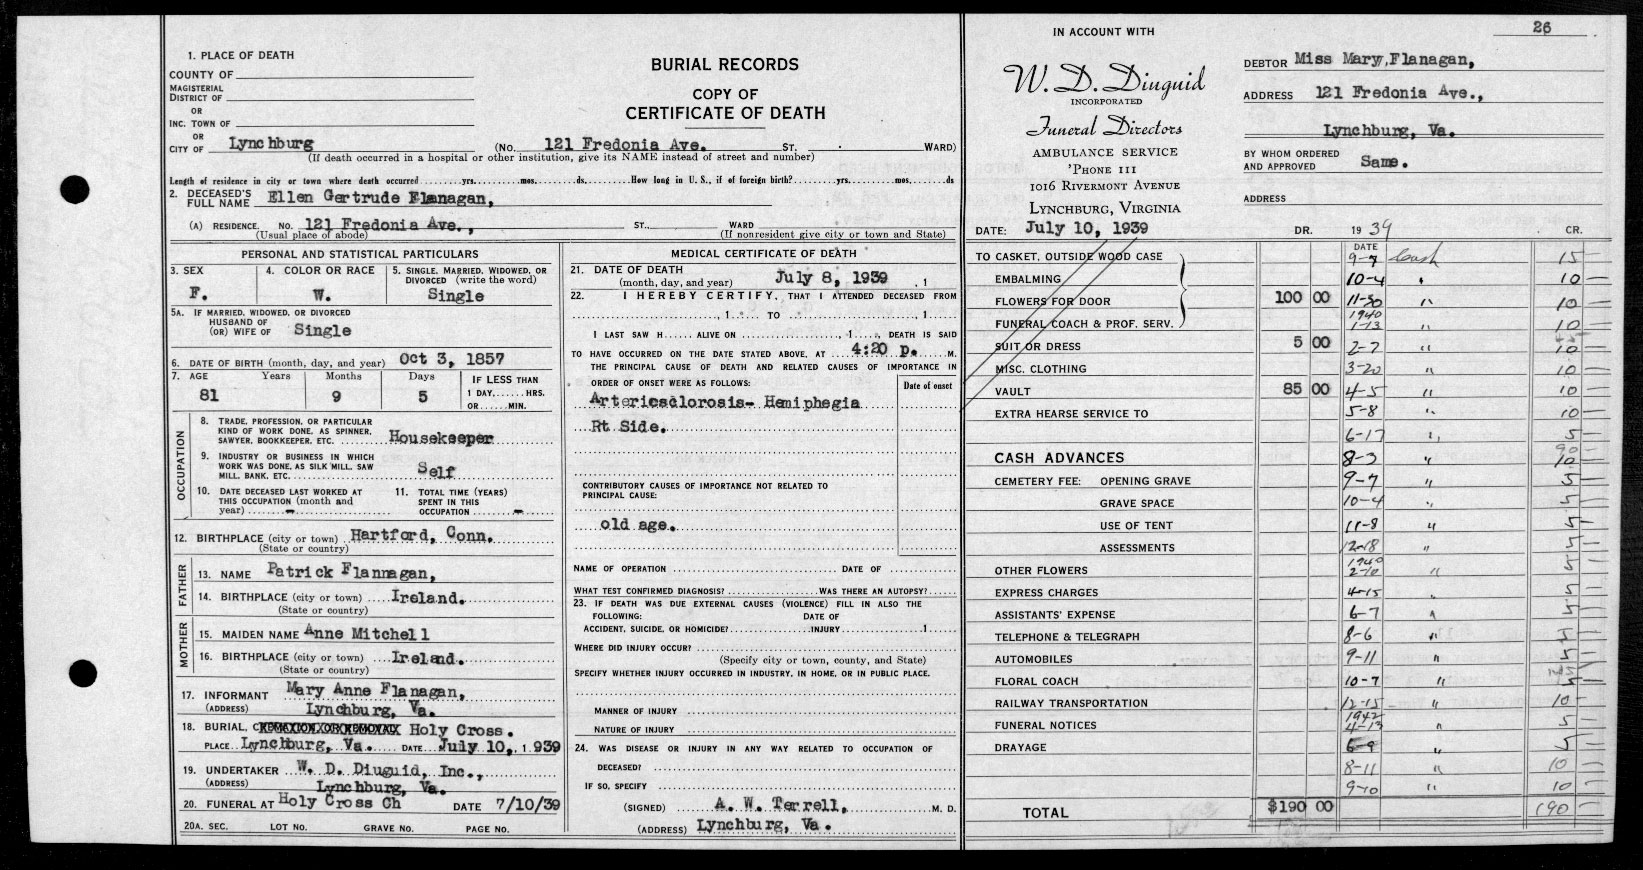 1. PLACE OF DEATH
COUNTY OF
MAGISTERIAL
DISTRICT OF
OR
INC. TOWN OF
OR
CITY OF Lynchburg
BURIAL RECORDS
COPY OF
CERTIFICATE OF DEATH
(No. 121 Fredonia Ave. ST. WARD)
(If death occurred in a hospital or other institution, give its NAME instead of street and number)
Length of residence in city or town where death occurred yrs. mos. ds. How long in U. S., if of foreign birth? yrs. mos. ds
2. DECEASED'S
FULL NAME Ellen Gertrude Flanagan,
(A) RESIDENCE. NO. 121 Fredonia Ave., ST. WARD
(Usual place of abode) (If nonresident give city or town and State)
PERSONAL AND STATISTICAL PARTICULARS
3. SEX F.
4. COLOR OR RACE W.
5. SINGLE, MARRIED, WIDOWED, OR
DIVORCED (write the word)
Single
5A. IF MARRIED, WIDOWED, OR DIVORCED
HUSBAND OF
(OR) WIFE OF Single
6. DATE OF BIRTH (month, day, and year) Oct 3, 1857
7. AGE Years Months Days IF LESS THAN
1 DAY, HRS.
OR MIN.
81 9 5
OCCUPATION
8. TRADE, PROFESSION, OR PARTICULAR
KIND OF WORK DONE, AS SPINNER,
SAWYER, BOOKKEEPER, ETC. Housekeeper
9. INDUSTRY OR BUSINESS IN WHICH
WORK WAS DONE, AS SILK MILL, SAW
MILL, BANK, ETC. Self
10. DATE DECEASED LAST WORKED AT
THIS OCCUPATION (month and
year) -
11. TOTAL TIME (YEARS)
SPENT IN THIS
OCCUPATION -
12. BIRTHPLACE (city or town) Hartford, Conn.
(State or country)
FATHER
13. NAME Patrick Flannagan,
14. BIRTHPLACE (city or town) Ireland.
(State or country)
MOTHER
15. MAIDEN NAME Anne Mitchell
16. BIRTHPLACE (city or town) Ireland.
(State or country)
17. INFORMANT Mary Anne Flanagan,
(ADDRESS) Lynchburg, Va.
18. BURIAL, CREMATION OR REMOVAL Holy Cross.
PLACE Lynchburg, Va. DATE July 10, 1939
19. UNDERTAKER W. D. Diuguid, Inc.,
(ADDRESS) Lynchburg, Va.
20. FUNERAL AT Holy Cross Ch DATE 7/10/39
20A. SEC. LOT NO. GRAVE NO. PAGE NO.
MEDICAL CERTIFICATE OF DEATH
21. DATE OF DEATH
(month, day, and year) July 8, 1939 , 1
22. I HEREBY CERTIFY, THAT I ATTENDED DECEASED FROM
, 1 TO , 1
I LAST SAW H ALIVE ON , 1 , DEATH IS SAID
TO HAVE OCCURRED ON THE DATE STATED ABOVE, AT 4:20 p. M.
THE PRINCIPAL CAUSE OF DEATH AND RELATED CAUSES OF IMPORTANCE IN
ORDER OF ONSET WERE AS FOLLOWS:
Date of onset
Artericsclorosis- Hemiphegia
Rt Side.
CONTRIBUTORY CAUSES OF IMPORTANCE NOT RELATED TO
PRINCIPAL CAUSE:
old age.
NAME OF OPERATION DATE OF
WHAT TEST CONFIRMED DIAGNOSIS? WAS THERE AN AUTOPSY?
23. IF DEATH WAS DUE EXTERNAL CAUSES (VIOLENCE) FILL IN ALSO THE
FOLLOWING: DATE OF
ACCIDENT, SUICIDE, OR HOMICIDE? INJURY 1
WHERE DID INJURY OCCUR?
(Specify city or town, county, and State)
SPECIFY WHETHER INJURY OCCURRED IN INDUSTRY, IN HOME, OR IN PUBLIC PLACE.
MANNER OF INJURY
NATURE OF INJURY
24. WAS DISEASE OR INJURY IN ANY WAY RELATED TO OCCUPATION OF
DECEASED?
IF SO, SPECIFY
(SIGNED) A. W. Terrell, M. D.
(ADDRESS) Lynchburg, Va.
26
IN ACCOUNT WITH
W. D. Diuguid
INCORPORATED
Funeral Directors
AMBULANCE SERVICE
'PHONE 111
1016 RIVERMONT AVENUE
LYNCHBURG, VIRGINIA
DEBTOR Miss Mary, Flanagan,
ADDRESS 121 Fredonia Ave.,
Lynchburg, Va.
BY WHOM ORDERED
AND APPROVED Same.
ADDRESS
DATE: July 10, 1939 DR. 1939 CR.
DATE
TO CASKET, OUTSIDE WOOD CASE 9-7 Cash 15
EMBALMING 10-4 " 10
FLOWERS FOR DOOR 100 00 11-30 " 10
1940
FUNERAL COACH & PROF. SERV. 1-13 " 10
SUIT OR DRESS 5 00 2-7 " 10
MISC. CLOTHING 3-20 " 10
VAULT 85 00 4-5 " 10
EXTRA HEARSE SERVICE TO 5-8 " 10
6-17 " 5
90
CASH ADVANCES 8-3 " 10
CEMETERY FEE: OPENING GRAVE 9-7 " 5
GRAVE SPACE 10-4 " 5
USE OF TENT 11-8 " 5
ASSESSMENTS 12-18 " 5
OTHER FLOWERS 2-10 " 5
EXPRESS CHARGES 4-15 " 5
ASSISTANTS' EXPENSE 6-7 " 5
TELEPHONE & TELEGRAPH 8-6 " 5
AUTOMOBILES 9-11 " 5
FLORAL COACH 10-7 " 5
RAILWAY TRANSPORTATION 12-15 " 10
1942
FUNERAL NOTICES 4-13 " 5
DRAYAGE 6-9 " 5
8-11 " 10
9-10 " 10
TOTAL $190 00 190